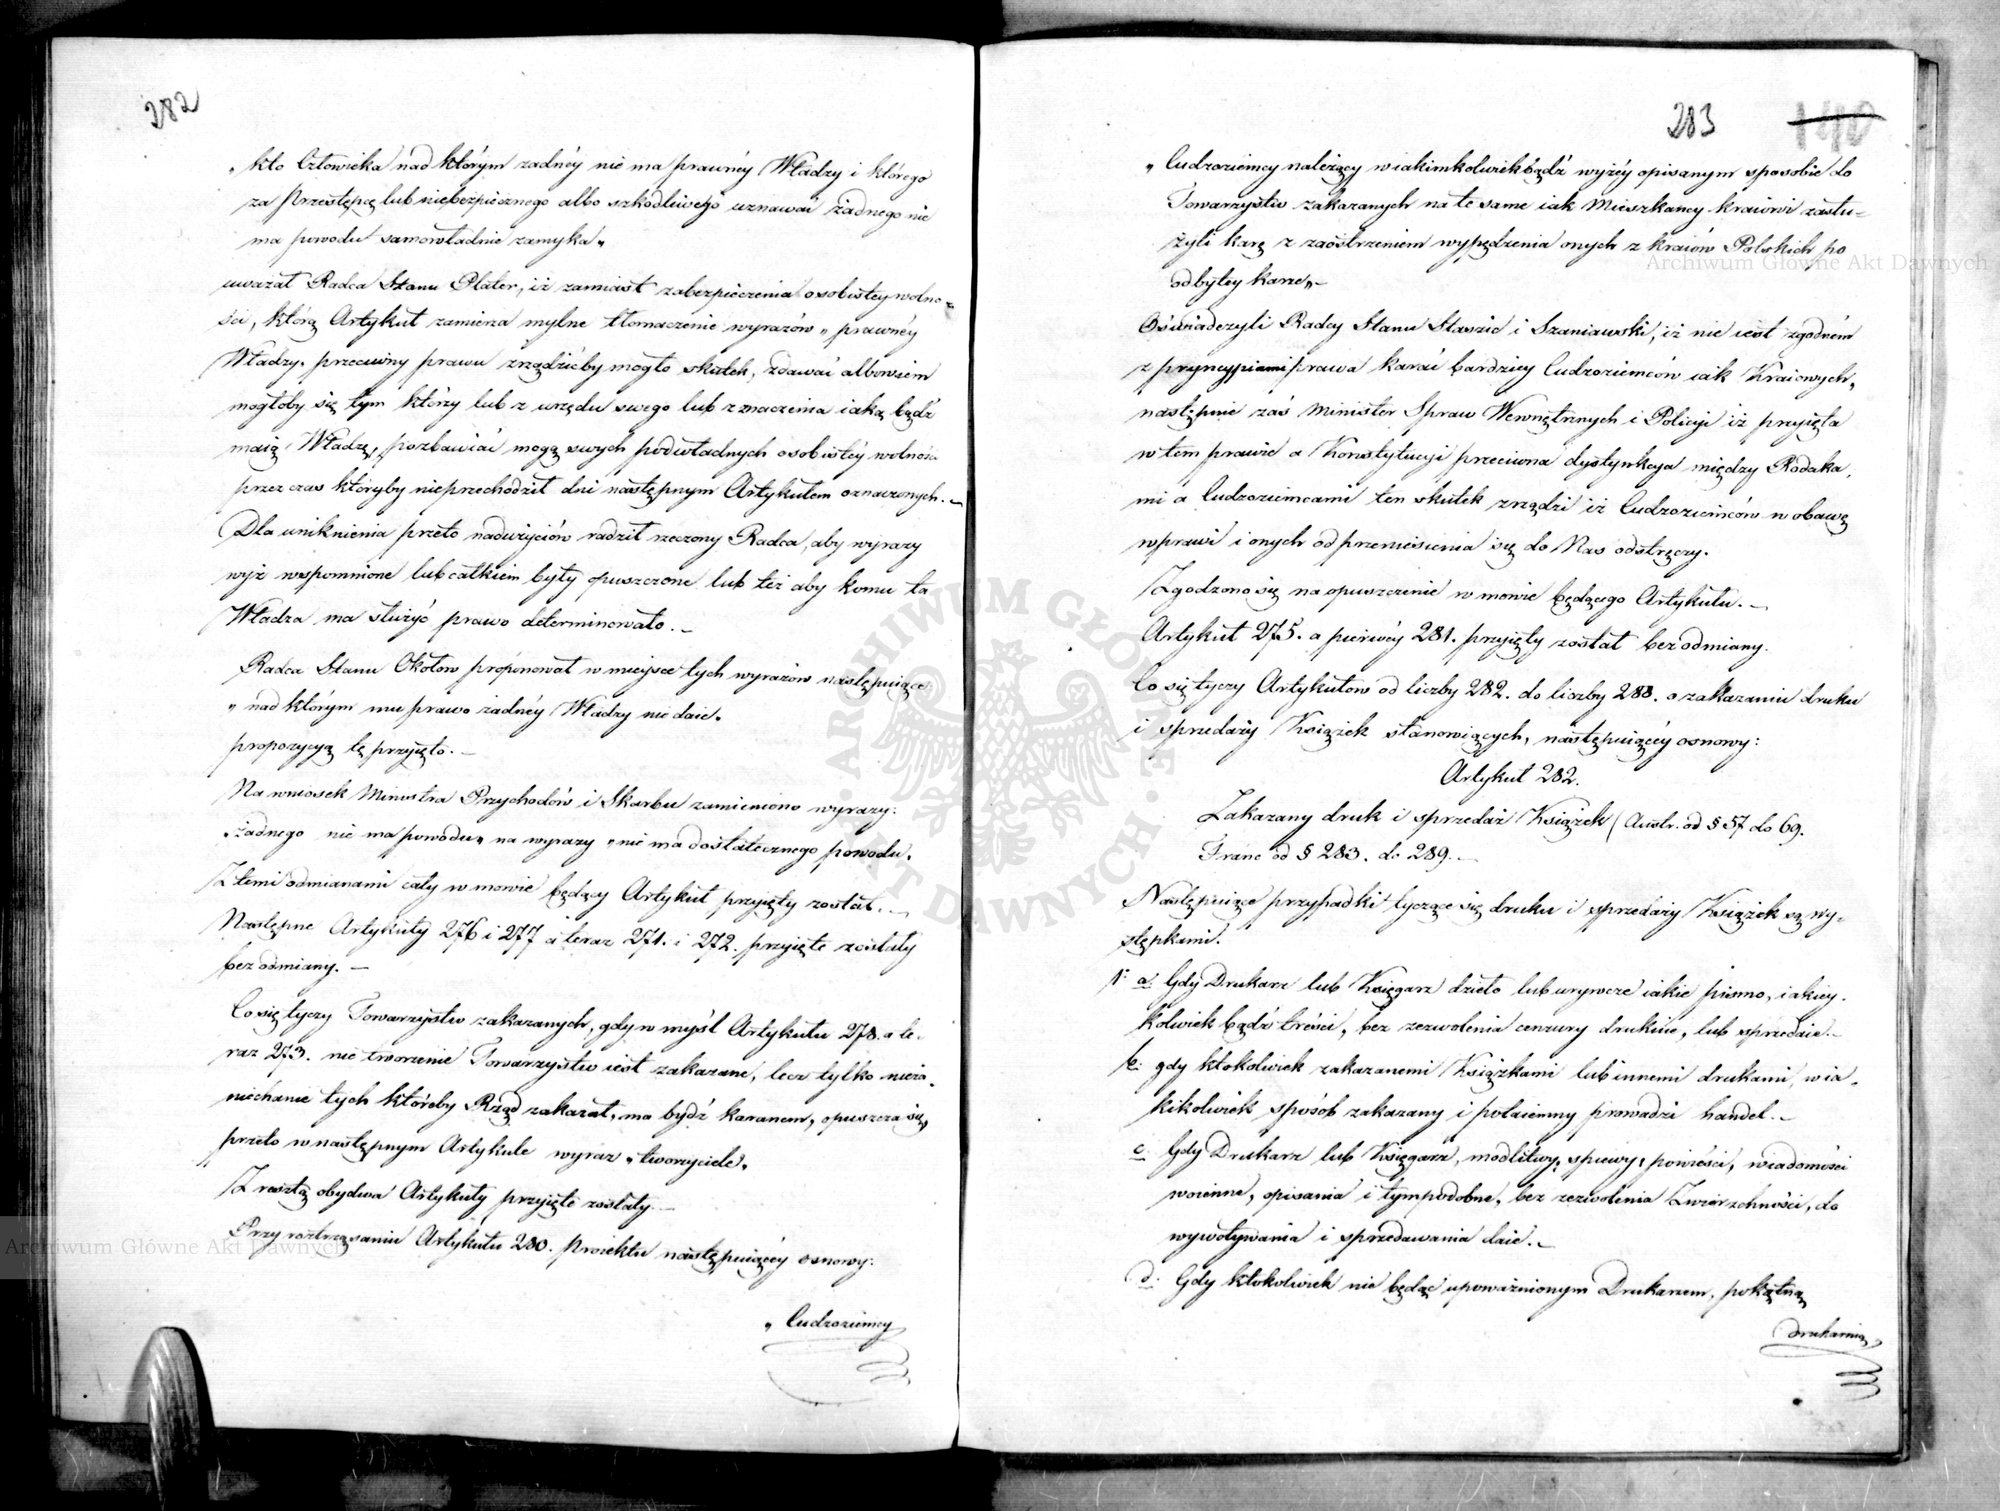 282
„kto Człowieka nad którym żadnéy nie ma prawnéy Władzy i którego
za Przestępcę lub niebezpiecznego albo szkodliwego uznawać żadnego nie
ma powodu samowładnie zamyka„
uważał Radca Stanu Plater, iż zamiast zabezpieczenia osobistey wolno-
ści, którą Artykuł zamierza mylne tłomaczenie wyrazów „prawnéy
Władzy„ przeciwny prawu zrządzićby mogło skutek, zdawać albowiem
mogłoby się tym którzy lub z urzędu swego lub z znaczenia iaką bądź
maią Władzę, pozbawiać mogą swych podwładnych osobistéy wolności
przez czas któryby nieprzechodził dni następnym Artykułem oznaczonych. —
Dla uniknienia przeto nadużyciów radził rzeczony Radca, aby wyrazy
wyż wspomnione lub całkiem były opuszczone lub też aby komu ta
Władza ma służyć prawo determinowało. —
Radca Stanu Okołow proponował w mieysce tych wyrazów następuiące:
„nad którym mu prawo żadnéy Władzy nie daie„
propozycyą tę przyięto. —
Na wniosek Ministra Przychodów i Skarbu zamieniono wyrazy:
„żadnego nie ma powodu„ na wyrazy „nie ma dostatecznego powodu„
Z temi odmianami cały w mowie będący Artykuł przyięty został. —
Następne Artykuły 276 i 277 a teraz 271. i 272. przyięte zostały
bez odmiany. —
Co się tyczy Towarzystw zakazanych, gdy w myśl Artykułu 278. a te-
raz 273. nie tworzenie Towarzystw iest zakazane, lecz tylko nieza-
niechanie tych któreby Rząd zakazał, ma bydź karanem, opuszcza się
przeto w następnym Artykule wyraz „tworzyciele„
Z resztą obydwa Artykuły przyięte zostały. —
Przy roztrząsaniu Artykułu 280. Proiektu następuiącéy osnowy:
„Cudzoziemcy
283
140
„Cudzoziemcy należący w iakimkolwiekbądź wyżéy opisanym sposobie do
Towarzystw zakazanych na te same iak Mieszkańcy kraiowi zasłu-
żyli karę z zaostrzeniem wypędzenia onych z kraiów Polskich po
odbytey karze„ —
Oświadczyli Radcy Stanu Staszic i Szaniawski, iż nie iest zgodném
z pryncypiami prawa karać bardziey Cudzoziemców iak Kraiowych,
następnie zaś Minister Spraw Wewnętrznych i Policyi iż przyięta
w tem prawie a Konstytucyi przeciwna dystynkcya między Rodaka-
mi a Cudzoziemcami ten skutek zrządzi iż Cudzoziemców w obawę
wprawi i onych od przeniesienia się do Nas odstręczy.
Zgodzono się na opuszczenie w mowie będącego Artykułu. —
Artykuł 275. a pierwéy 281. przyięty został bez odmiany.
Co się tyczy Artykułow od liczby 282. do liczby 288. o zakazaniu druku
i sprzedaży Książek stanowiących, następuiącéy osnowy:
Artykuł 282.
Zakazany druk i sprzedaż Książek (Austr. od § 57 do 69.
Franc od § 283. do 289. —
Następuiące przypadki tyczące się druku i sprzedaży Książek są wy-
stępkami.
1° a. Gdy Drukarz lub Księgarz dzieło lub urywcze iakie pismo, iakiey-
kolwiek bądź treści, bez zezwolenia cenzury drukuie, lub sprzedaie. —
b. gdy ktokolwiek zakazanemi Książkami lub innemi drukami w ia-
kikolwiek sposób zakazany i potaiemny prowadzi handel. —
c. Gdy Drukarz lub Księgarz, modlitwy, spiewy, powieści, wiadomości
woienne, opisania i tym podobne, bez zezwolenia Zwierzchności, do
wywoływania i sprzedawania daie. —
d. Gdy ktokolwiek nie będąc upoważnionym Drukarzem, pokątną
drukarnią
Archiwum Główne Akt Dawnych
Archiwum Główne Akt Dawnych
ARCHIWUM GŁÓWNE AKT DAWNYCH